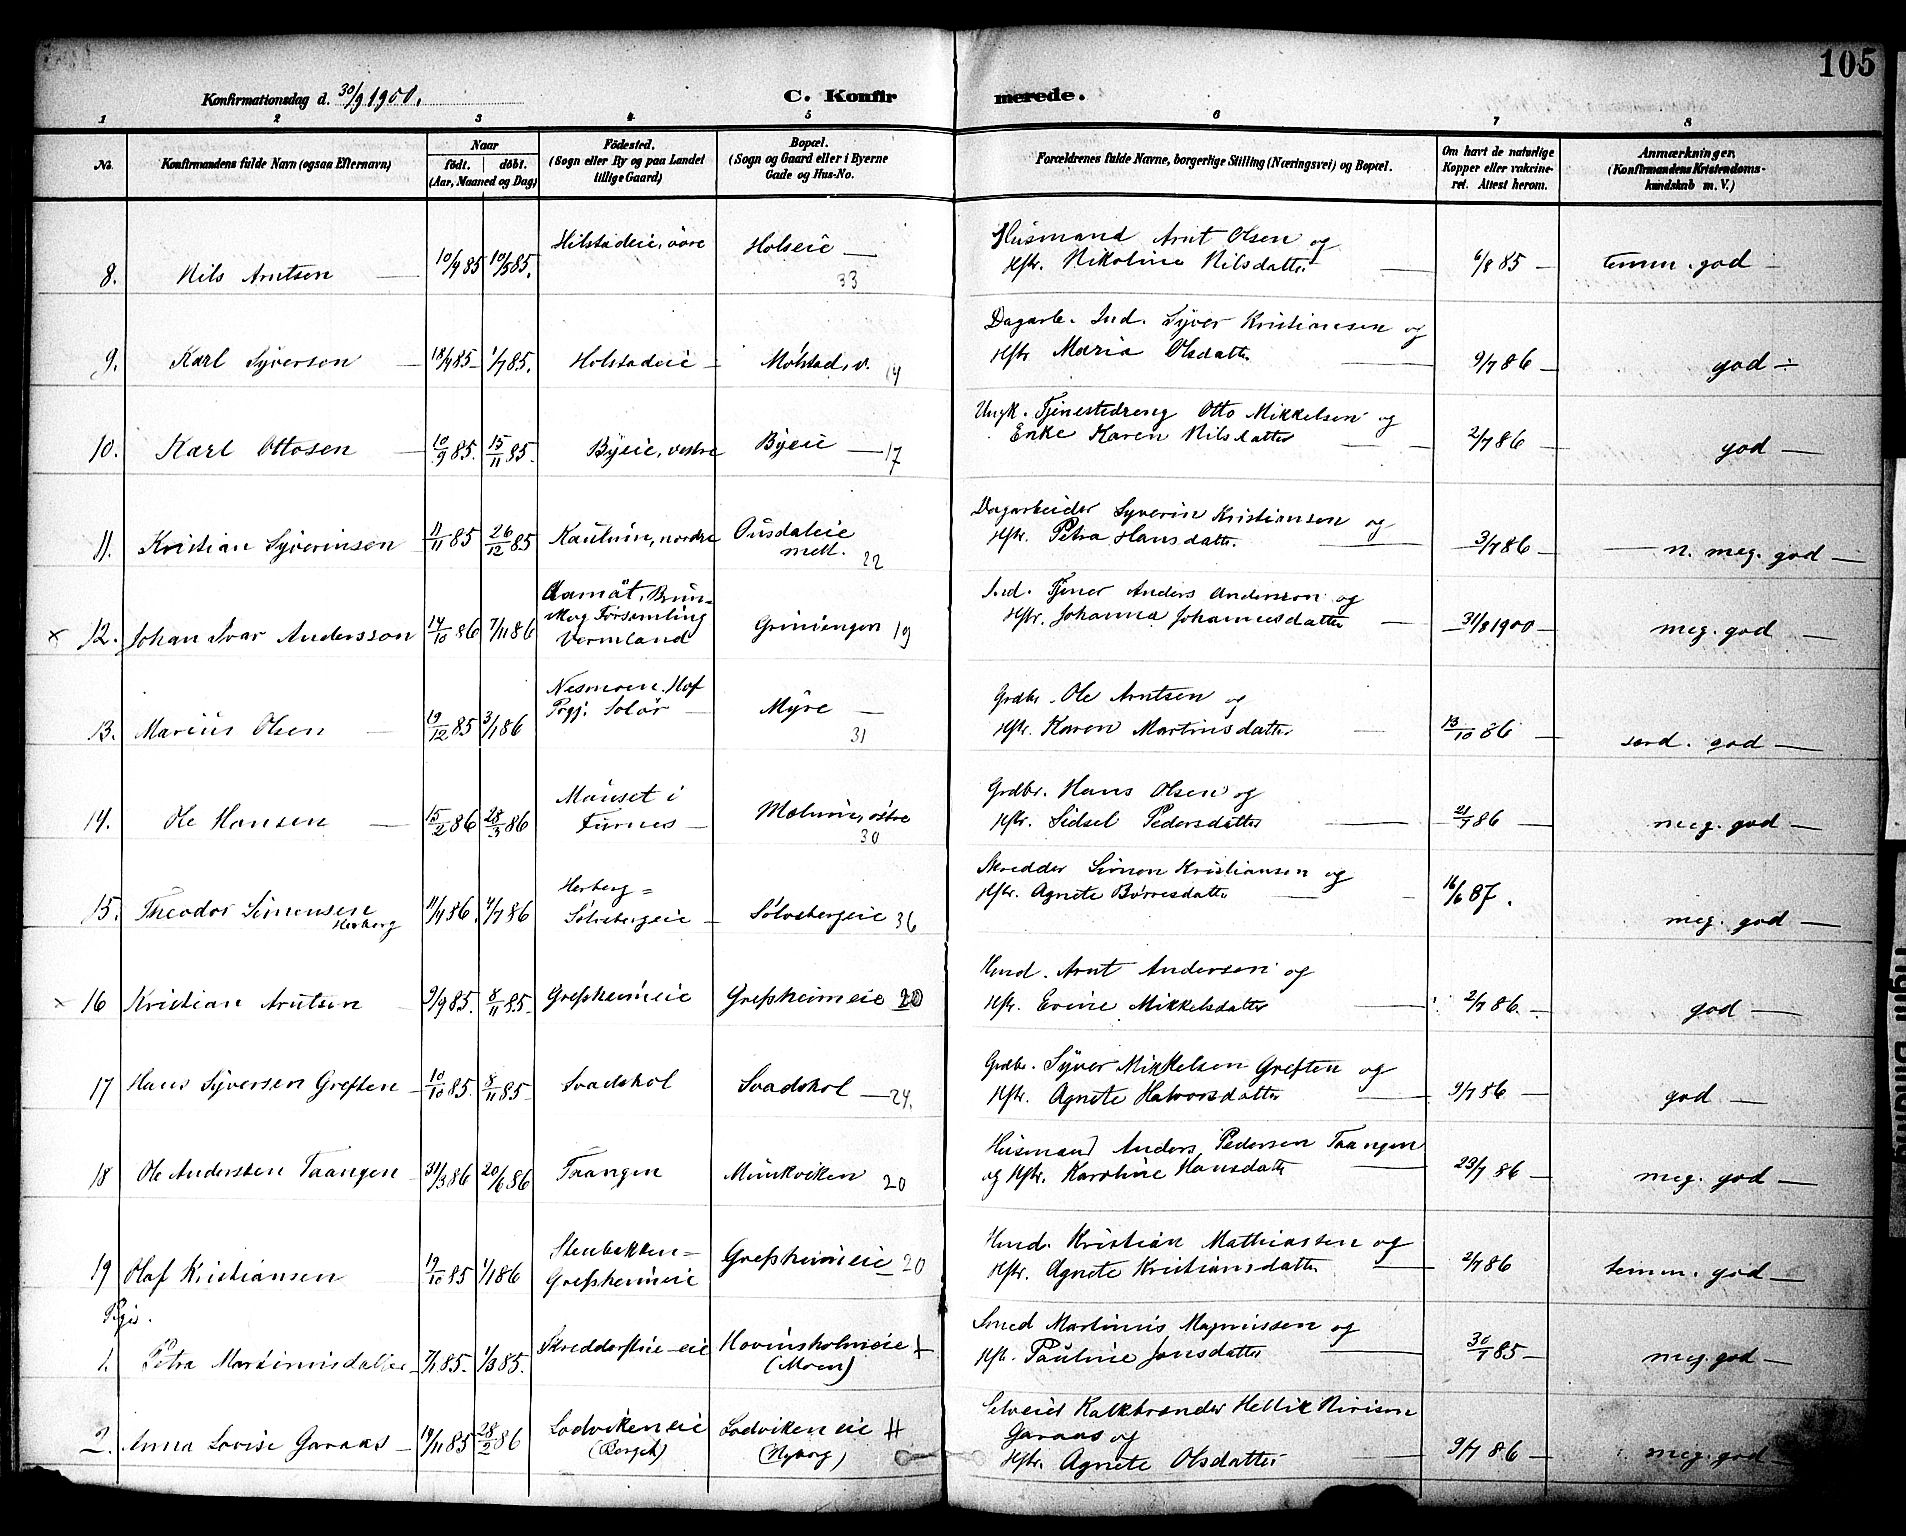 105
Konfirmationsdag d. 30/9 1900.
C. Konfirmerede.
1 2 3 4 5 6 7 8
No. Konfirmandens fulde Navn (ogsaa Efternavn) Naar födt. döbt. (Aar, Maaned og Dag) Födested. (Sogn eller By og paa Landet tillige Gaard) Bopæl. (Sogn og Gaard eller i Byerne Gade og Hus-No. Forældrenes fulde Navne, borgerlige Stilling (Næringsvei) og Bopæl. Om havt de naturlige Kopper eller vakcineret. Attest herom. Anmærkninger. (Konfirmandens Kristendomskundskab m. V.)
8. Nils Arntsen 10/4 85 10/5 85. Hilstadeie, övre Holseie 33 Husmand Arnt Olsen og Hstr. Nikoline Nilsdatter 6/8 85 temm. god
9. Karl Syversen 18/4 85 1/7 85. Holstadeie Molstad, v. 14 Dagarb. Ind. Syver Kristiansen og Hstr Maria Olsdatter 9/7 86 god
10. Karl Ottosen 10/9 85. 15/11 85. Byeie, vestre Byeie 17 Ungk. Tjenestedreng Otto Mikkelsen og Enke Karen Nilsdatter 2/7 86 god
11. Kristian Syverinsen 11/11 85 26/12 85 nordre mell. 22 Dagarbeider Syverin Kristiansen og Hstr. Petra Hansdatter. 3/7 86 n. meg. god
x 12. Johan Ivar Andersson 14/10 86 7/11 86 Aamöt, Brunskog Forsamling Vermland Griniengen 19 Ind. Tjener Anders Andersson og Hstr. Johanna Johannesdatter 31/8 1900 meg. god
13. Marius Olsen 19/12 85 3/1 86 Nesmoen, Hof Prgj. Solör Myre 31 Grdbr. Ole Arntsen og Hstr. Karen Martinsdatter 13/10 86 serd. god
14. Ole Hansen 15/2 86 28/3 86 Mauset i Furnes östre 30 Grdbr. Hans Olsen og Hstr. Sidsel Pedersdatter 21/7 86 meg. god
15. Theodor Simensen Herberg 11/4 86. 4/7 86 Herberg= Sölvsbergeie Sölvsbergeie 36 Skredder Simon Kristiansen og Hstr. Agnete Börresdatter 16/6 87. meg. god
x 16 Kristian Arntsen 9/9 85. 8/11 85. Grefsheimeie Grefsheimeie 20 Hmd. Arnt Andersen og Hstr. Evine Mikkelsdatter 2/7 86. god
17 Hans Syversen Greften 10/10 85. 8/11 85. Svadshol Svadshol 24. Grdbr. Syver Mikkelsen Greften og Hstr. Agnete Halvorsdatter 9/7 86 god
18 Ole Andersen Taangen 31/3 86 20/6 86 Taangen Munkviken 20 Husmand Anders Pedersen Taangen og Hstr. Karoline Hansdatter 23/7 86 meg. god
19 Olaf Kristiansen 19/10 85 1/1 86 Stenbekken= Grefsheimeie Grefsheimeie 20 Hmd. Kristian Mathiassen og Hstr. Agnete Kristiansdatter 2/7 86 temm. god
Pige.
1. Petra Martinusdatter 7/1 85. 1/3 85. Hovinsholmeie (Moen) Smed Martinus Magnussen og Hstr. Pauline Jonsdatter 30/7 85 meg. god
2. Anna Lovise Garaas 19/11 85 28/2 86 Lodvikeneie Lodvikeneie (Nyborg) Selveier Kalkbrænder Hellik Garaas og Hstr. Agnete Olsdatter 9/7 86 meg. god